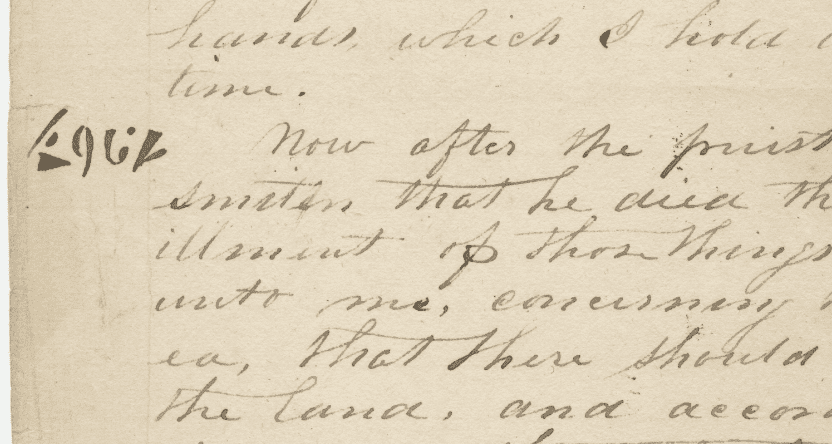 hands, which I hold
time.
Now after the priest
smiten that he died th
illment of those things
unto me, concerning
ea, that there should
the land, and accor